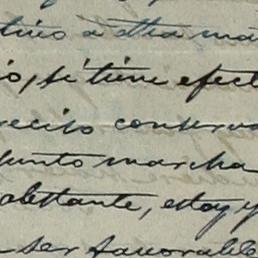 tivo a otra ma
o, si tiene efect
reciso conserva
unto marcha
obstante, estoy y
a ser favorable